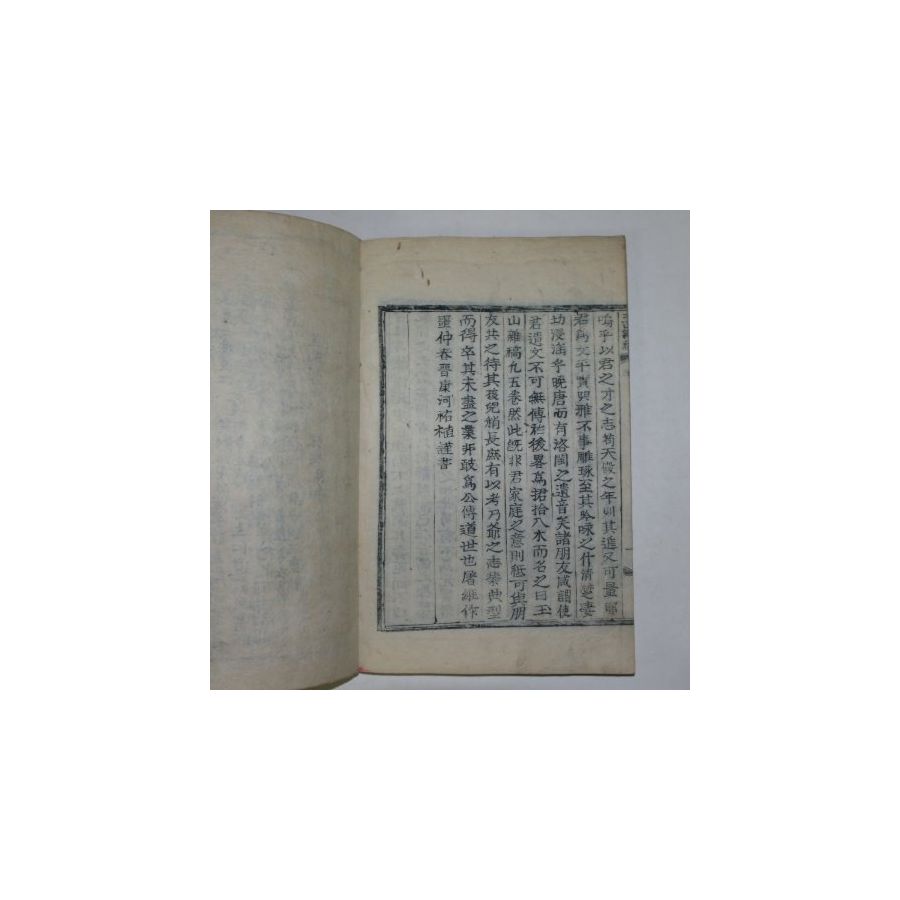 嗚乎以君之才之志苟天假之年則其進又可量耶
君爲文平實典雅不事雕琢至其吟咏之什清楚凄
切浸淫乎晚唐而有洛閩之遺音矣諸朋友咸謂使
君遺文不可無傳於後畧爲捃拾入木而名之曰玉
山雜稿凡五卷然此旣非君家庭之意則秪可與朋
友共之待其孩兒稍長庶有以考乃爺之志業典型
而得卒其未盡之業非敢爲公傳道世也屠維作
噩仲春晋康河祐植謹書